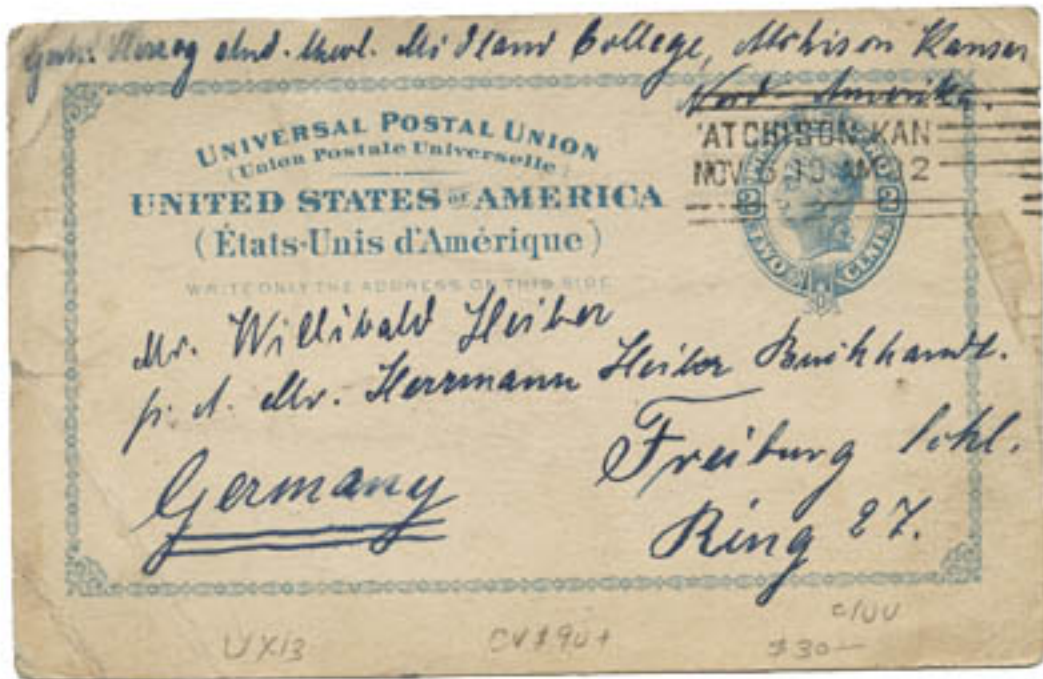 Herzog stud. theol. Midland College, Atchison Kansas
Nord-Amerika.
UNIVERSAL POSTAL UNION
(Union Postale Universelle)
UNITED STATES OF AMERICA
(États-Unis d'Amérique)
WRITE ONLY THE ADDRESS ON THIS SIDE
ATCHISON, KAN
NOV 5 10 AM 02
TWO CENTS
Mr. Willibald Heiber
p. A. Mr. Herrmann Heiber Buchhandl.
Freiburg Schl.
Ring 27.
Germany
UX13
CV $90+
$30—